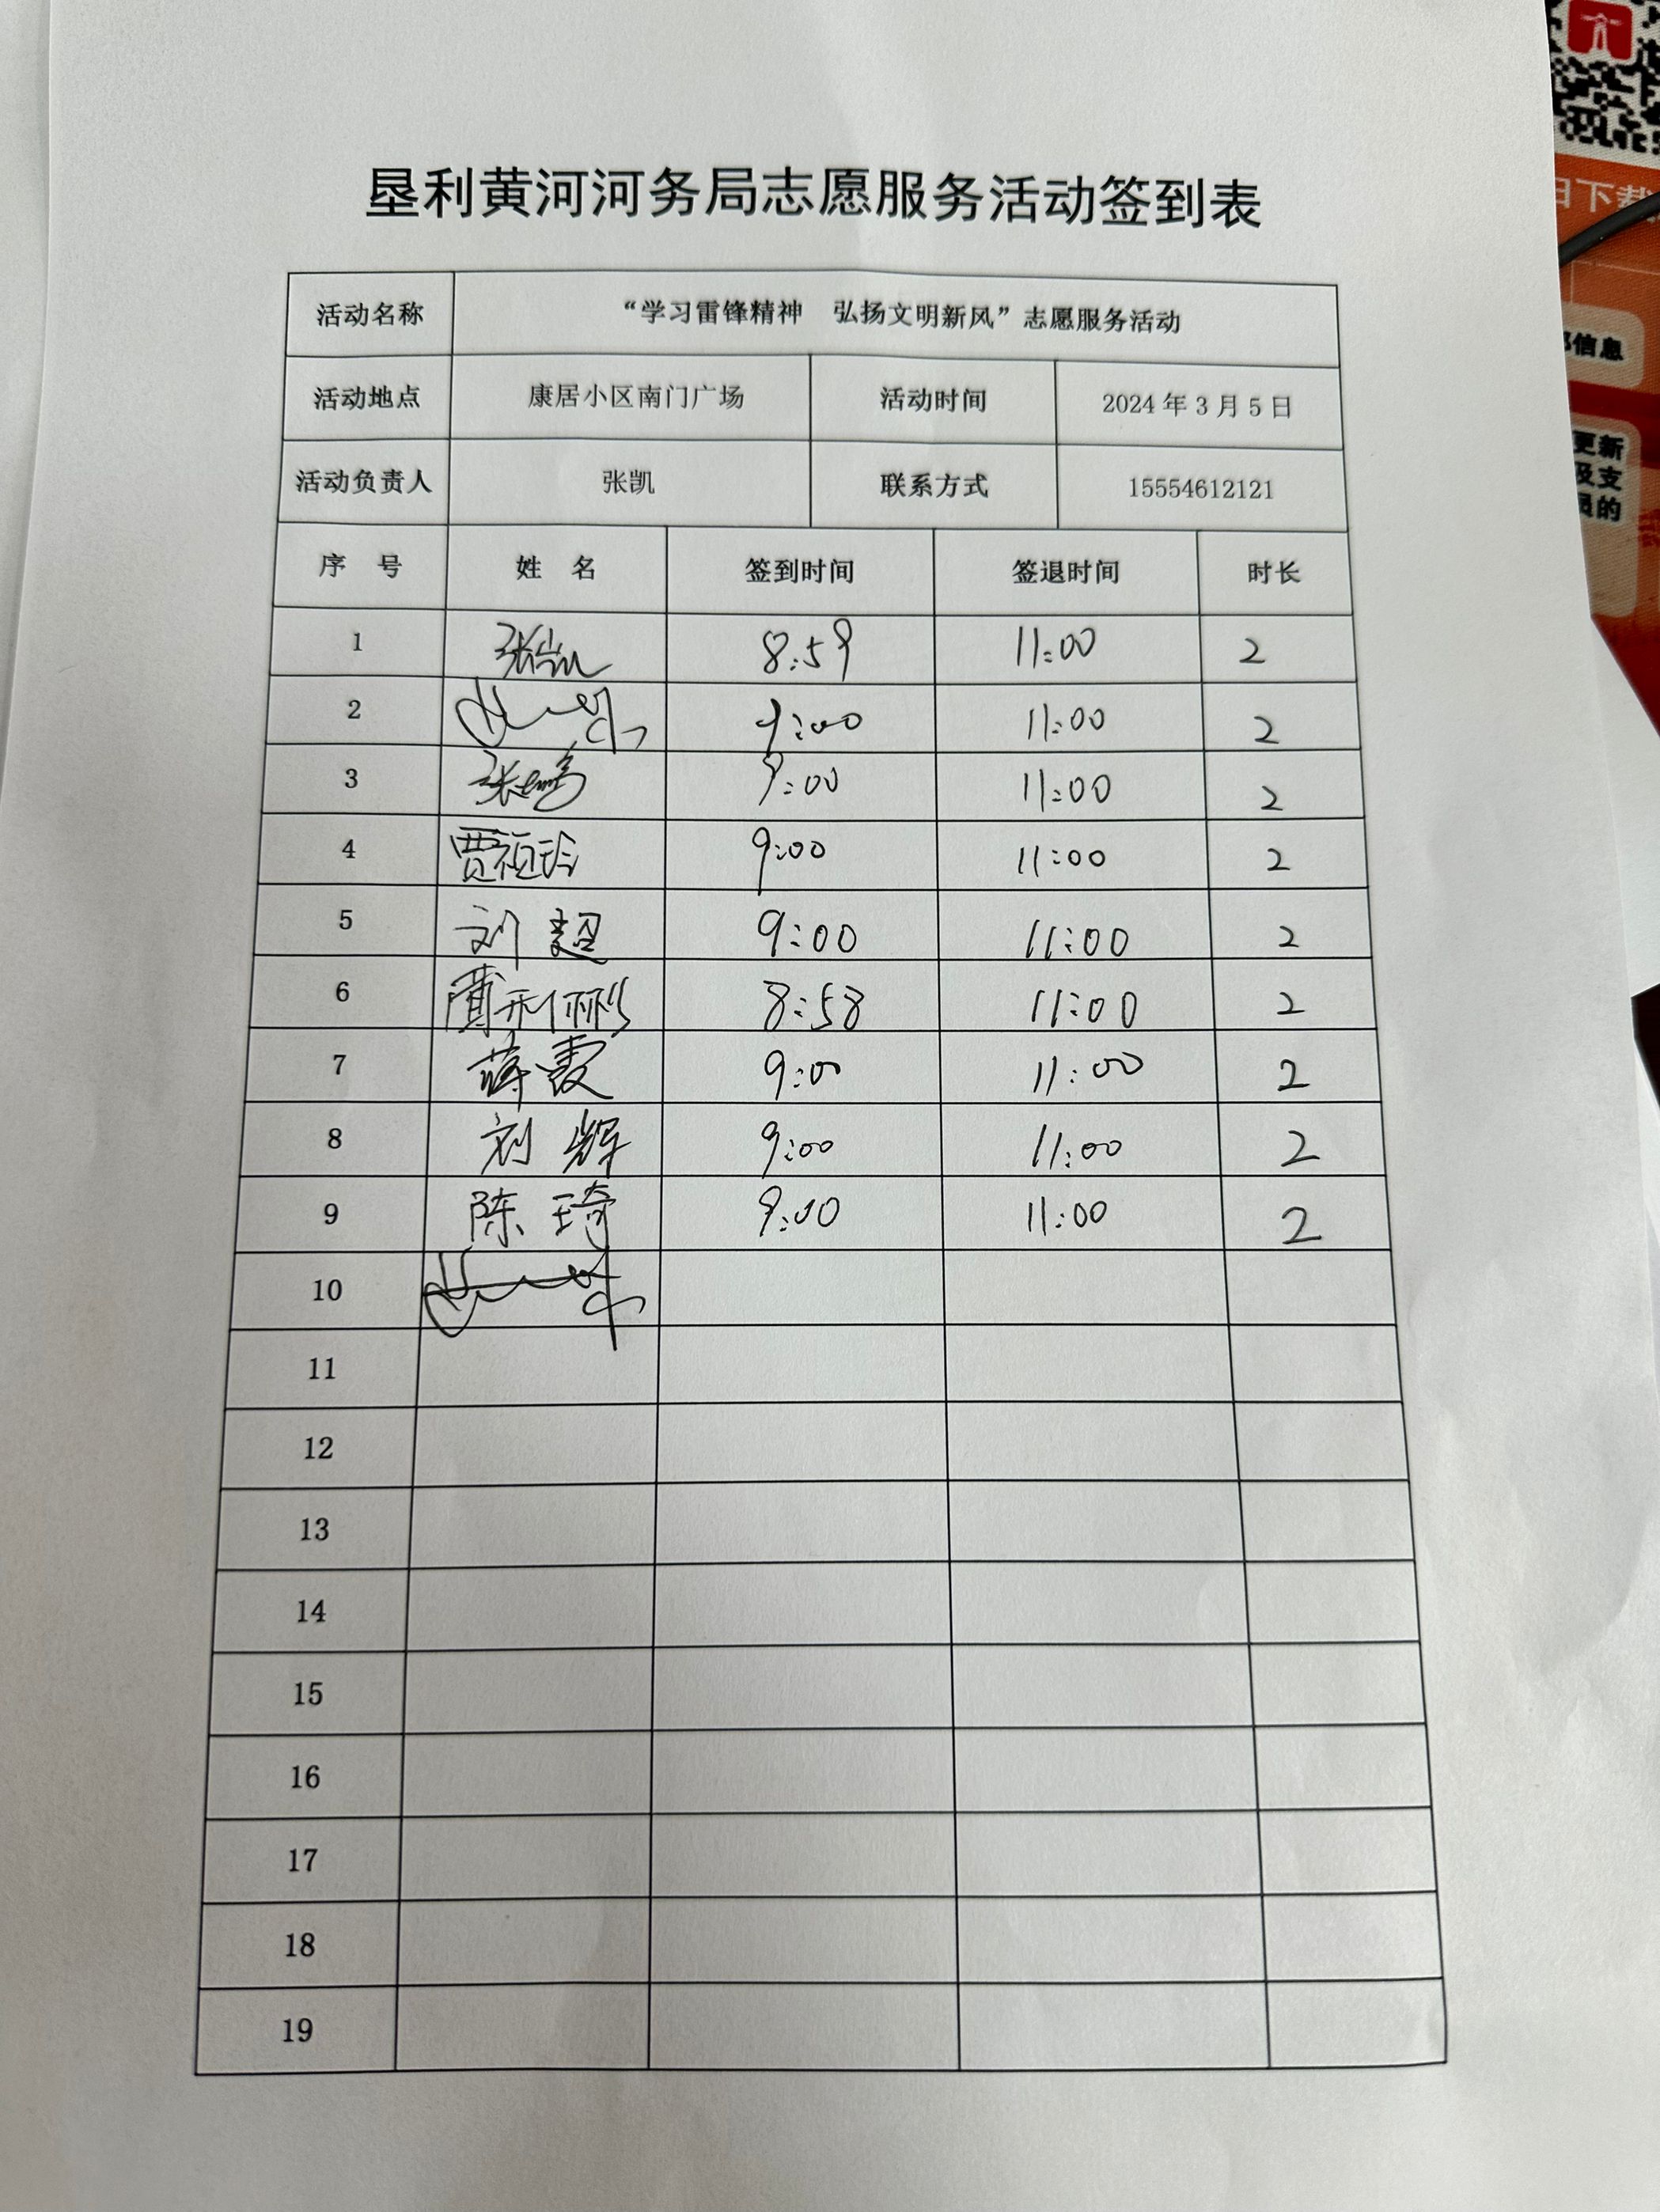 垦利黄河河务局志愿服务活动签到表
活动名称 “学习雷锋精神 弘扬文明新风”志愿服务活动
活动地点 康居小区南门广场 活动时间 2024年3月5日
活动负责人 张凯 联系方式 15554612121
序 号 姓 名 签到时间 签退时间 时长
1 张凯 8:59 11:00 2
2 9:00 11:00 2
3 张鹏 9:00 11:00 2
4 贾祖玲 9:00 11:00 2
5 刘超 9:00 11:00 2
6 8:58 11:00 2
7 蒋霞 9:00 11:00 2
8 刘辉 9:00 11:00 2
9 陈琦 9:00 11:00 2
10
11
12
13
14
15
16
17
18
19
日下载
信息
更新
及支
员的